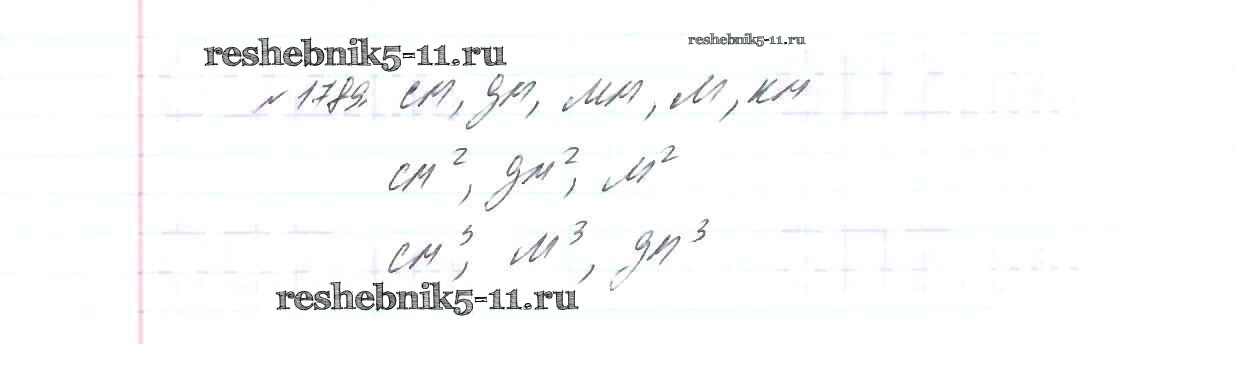 reshebnik5-11.ru
reshebnik5-11.ru
№ 1789. см, дм, мм, м, км
см², дм², м²
см³, м³, дм³
reshebnik5-11.ru